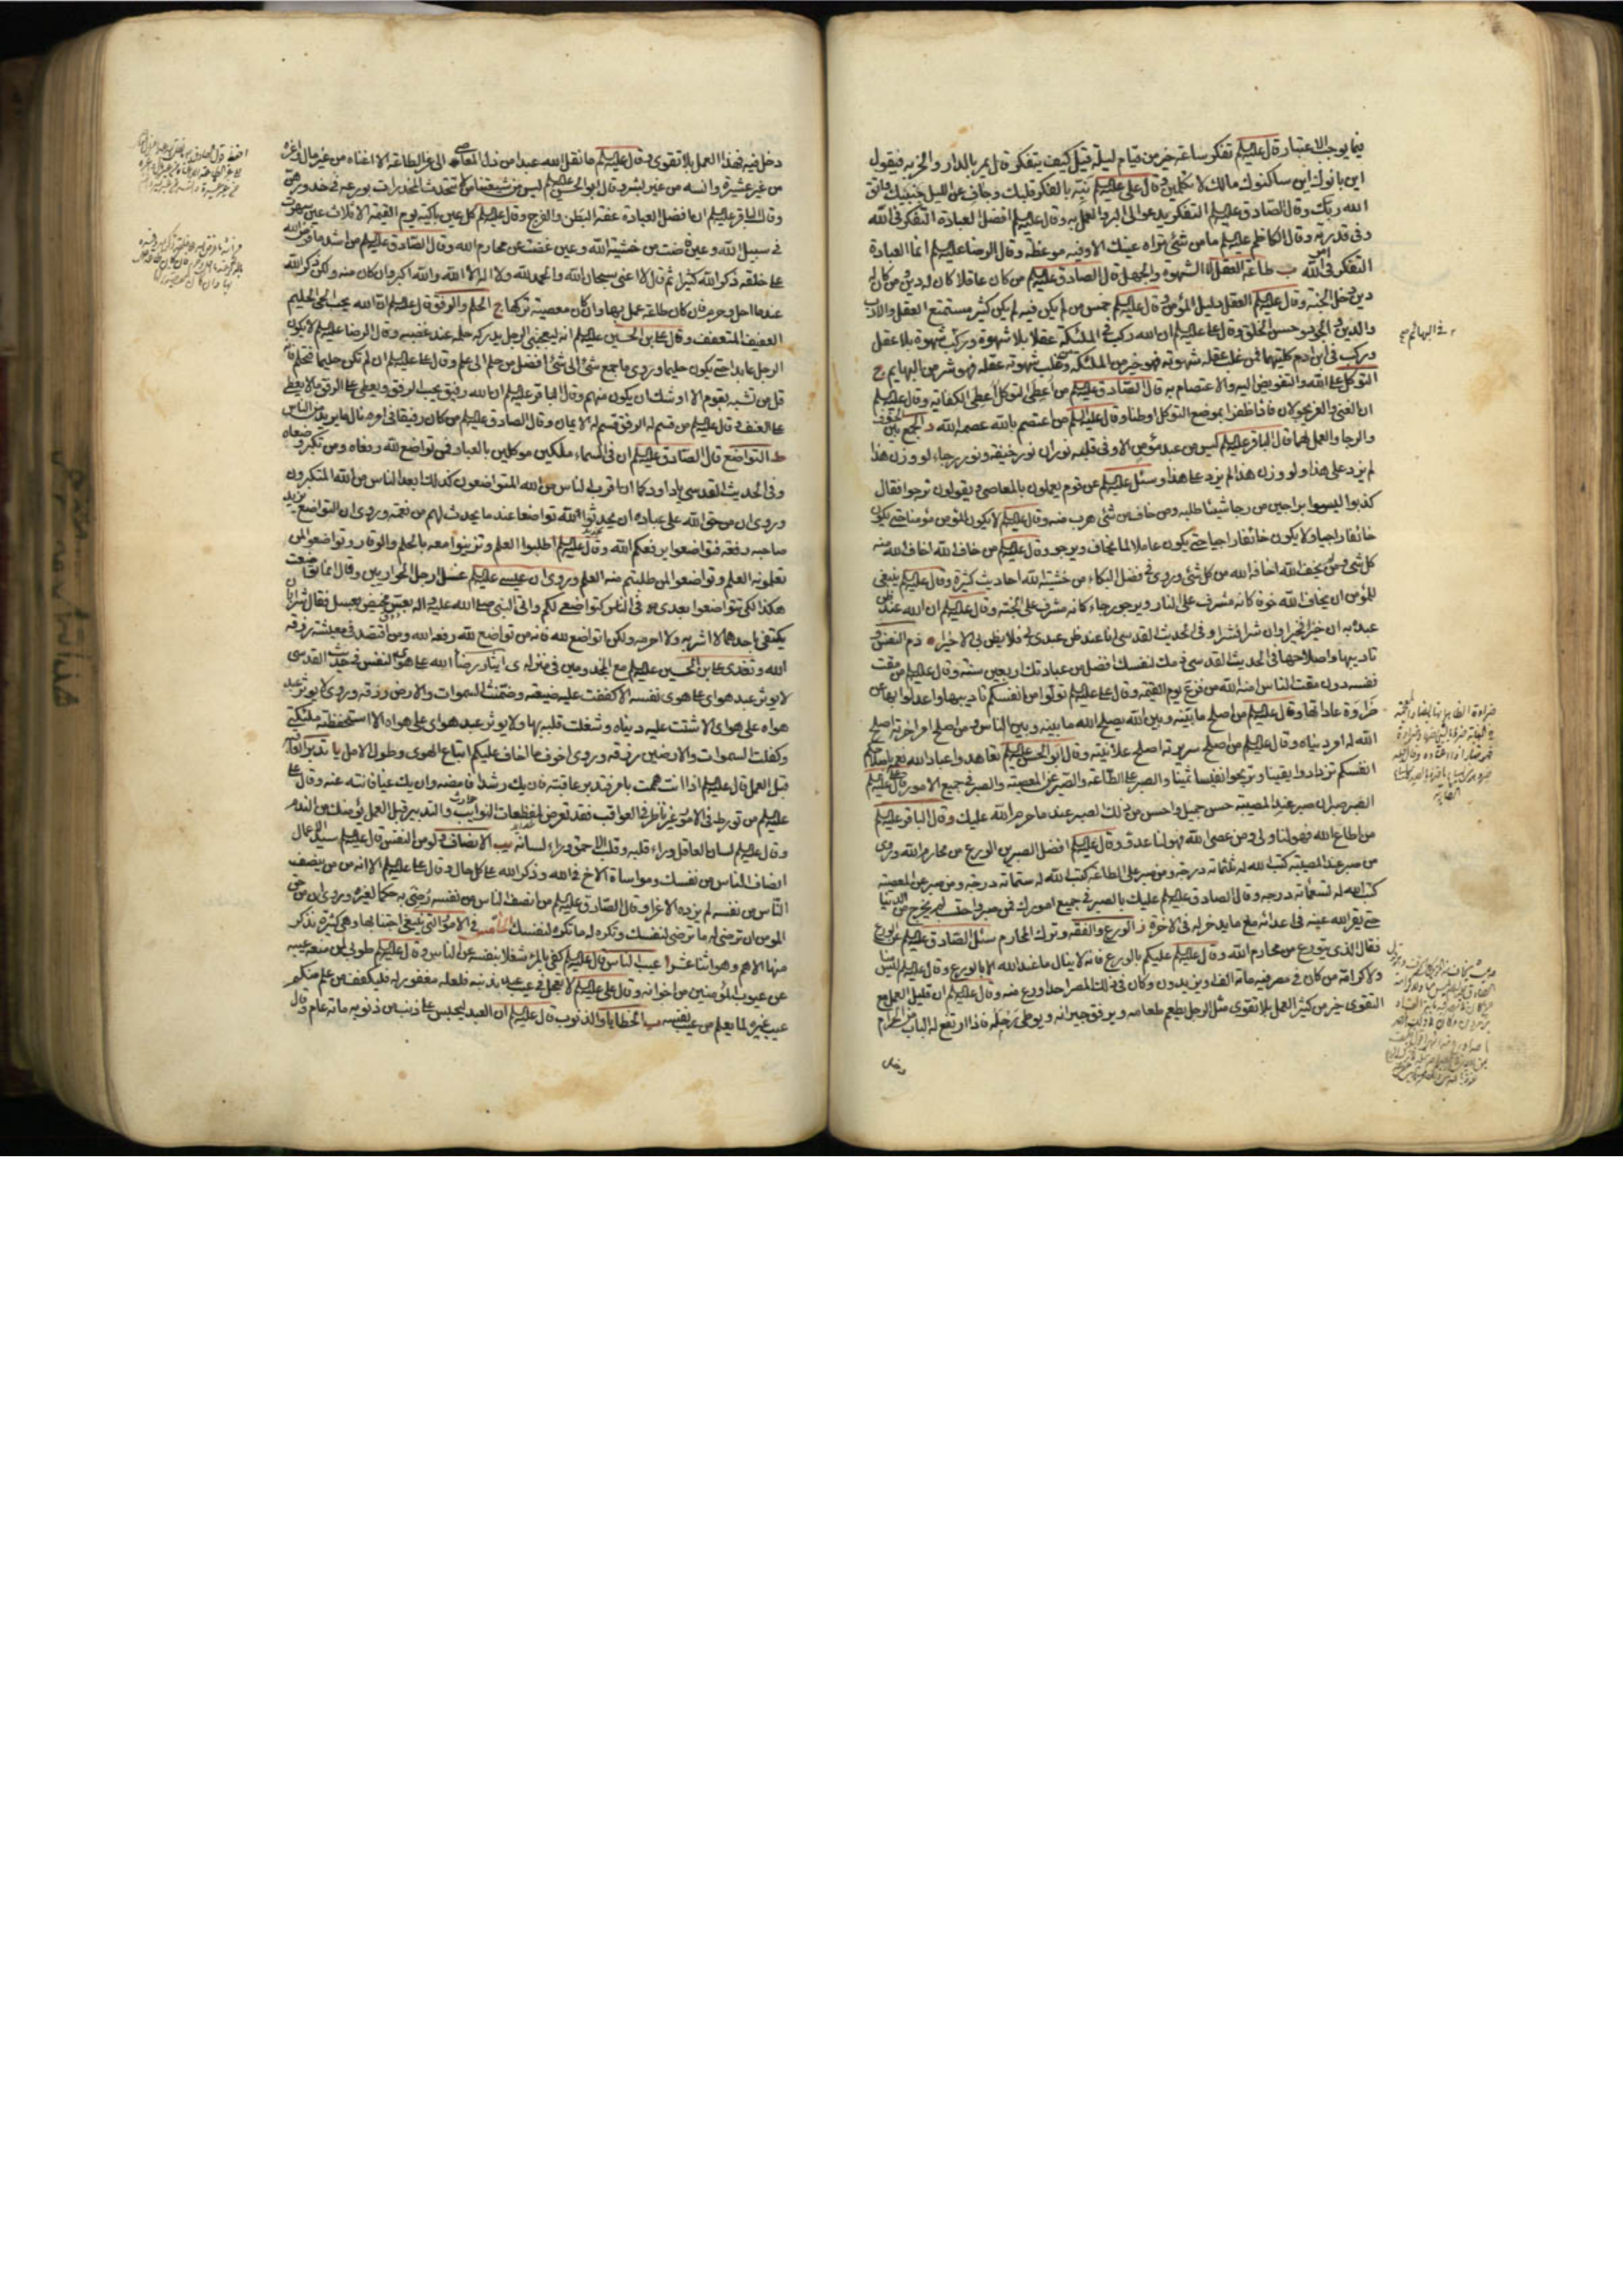 فيما يوجب الاعتبار قال عليه السلم تفكر ساعة خير من قيام ليلة قيل كيف يتفكر قال يمر بالدار والخربه فيقول
اين بانوك اين ساكنوك مالك لا تتكلمين وقال علي عليه السلم نبه بالفكر قلبك وجاف عن الليل جنبك واتق
الله ربك وقال الصادق عليه السلم التفكر يدعو الى البر والعمل به وقال عليه السلم افضل العبادة التفكر في الله
وفي قدرته وقال الكاظم عليه السلم ما من شئ تراه عينك الا وفيه موعظة وقال الرضا عليه السلم انما العبادة
التفكر في امر الله ب طاعة العقل لا الشهوة والجهل قال الصادق عليه السلم من كان عاقلا كان له دين ومن كان له
دين دخل الجنة وقال عليه السلم العقل دليل المؤمن وقال عليه السلم خمس من لم يكن فيه لم يكن كثير مستمتع العقل والادب
والدين والجود وحسن الخلق وقال علي عليه السلم ان الله ركب في الملئكة عقلا بلا شهوة وركب شهوة بلا عقل
وركب في ابن ادم كلتيهما فمن غلب عقله شهوته فهو خير من الملئكة ومن غلب شهوته عقله فهو شر من البهايم ج
التوكل على الله والتفويض اليه والاعتصام به قال الصادق عليه السلم من اعطى التوكل اعطى الكفاية وقال عليه السلم
ان الغنى والعز يجولان فاذا ظفرا بموضع التوكل اوطنا وقال عليه السلم من اعتصم بالله عصمه الله د الجمع بين الخوف
والرجا والعمل لهما قال الباقر عليه السلم ليس من عبد مؤمن الا وفي قلبه نوران نور خيفة ونور رجاء لو وزن هذا
لم يزد على هذا ولو وزن هذا لم يزد على هذا وسئل عليه السلم عن قوم يعملون بالمعاصي ويقولون نرجوا فقال
كذبوا ليسوا براجين من رجا شيئا طلبه ومن خاف من شئ هرب منه وقال عليه السلم لا يكون المؤمن مؤمنا حتى يكون
خائفا راجيا ولا يكون خائفا راجيا حتى يكون عاملا لما يخاف ويرجو وقال عليه السلم من خاف الله اخاف الله منه
كل شئ ومن لم يخف الله اخافه الله من كل شئ وروى في فضل البكاء من خشية الله احاديث كثيرة وقال عليه السلم ينبغي
للمؤمن ان يخاف الله خوفا كانه مشرف على النار ويرجو رجاء كانه مشرف على الجنة وقال عليه السلم ان الله عند ظن
عبده به ان خيرا فخيرا وان شرا فشرا وفي الحديث القدسي انا عند ظن عبدي بي فلا يظن بي الا خيرا ه ذم النفس و
تاديبها واصلاحها في الحديث القدسي ذمك لنفسك افضل من عبادتك اربعين سنة وقال عليه السلم من مقت
نفسه دون مقت الناس امنه الله من فزع يوم القيمة وقال علي عليه السلم تولوا من انفسكم تاديبها واعدلوا بها عن
ضراوة عاداتها وقال عليه السلم من اصلح ما بينه وبين الله يصلح الله ما بينه وبين الناس ومن اصلح امر اخرته اصلح
الله له امر دنياه وقال عليه السلم من اصلح سريرته اصلح علانيته وقال ابو الحسن عليه السلم تعاهدوا عباد الله نعمه باصلاحكم
انفسكم تزدادوا يقينا وتربحوا نفيسا ثمينا و الصبر على الطاعة والصبر عن المعصية والصبر في جميع الامور قال علي عليه السلم
الصبر صبران صبر عند المصيبة حسن جميل واحسن من ذلك الصبر عند ما حرم الله عليك وقال الباقر عليه السلم
من اطاع الله فهو لنا ولي ومن عصى الله فهو لنا عدو وقال عليه السلم افضل الصبرين الورع من محارم الله وروى
من صبر عند المصيبة كتب الله له ثلثمائة درجة ومن صبر على الطاعة كتب الله له ستمائة درجة ومن صبر عن المعصية
كتب الله له تسعمائة درجة وقال الصادق عليه السلم عليك بالصبر في جميع امورك فمن صبر واحتسب لم يخرج من الدنيا
حتى يقر الله عينه في اعدائه مع ما يدخر له في الاخرة ز الورع والفقه وترك المحارم سئل الصادق عليه السلم عن الورع
فقال الذي يتورع عن محارم الله وقال عليه السلم عليكم بالورع فانه لا ينال ما عند الله الا بالورع وقال عليه السلم ليس منا
ولا كرامة من كان في مصر فيه مائة الف او يزيدون وكان في ذلك المصر احد اورع منه وقال عليه السلم ان قليل العمل مع
التقوى خير من كثير العمل بلا تقوى مثل الرجل يطعم طعامه ويرفق جيرانه ويوطئ رحله فاذا ارتفع له الباب من الحرام
دخل
في البهائم صح
دخل فيه فهذا العمل بلا تقوى وقال عليه السلم ما نقل الله عبدا من ذل المعاصي الى عز الطاعة الا اغناه من غير مال واعزه
من غير عشيرة وانسه من غير بشر وقال ابو الحسن عليه السلم ليس من شيعتنا من لا تتحدث المخدرات بورعه في خدورهن
وقال الباقر عليه السلم ان افضل العبادة عفة البطن والفرج وقال عليه السلم كل عين باكية يوم القيمة الا ثلاث عين سهرت
في سبيل الله وعين فاضت من خشية الله وعين غضت عن محارم الله وقال الصادق عليه السلم من اشد ما فرض الله
على خلقه ذكر الله كثيرا ثم قال لا اعني سبحان الله والحمد لله ولا اله الا الله والله اكبر وان كان منه ولكن ذكر الله
عند ما احل وحرم فان كان طاعة عمل بها وان كان معصية تركها ح الحلم والرفق قال عليه السلم ان الله يحب الحيي الحليم
العفيف المتعفف وقال علي بن الحسين عليه السلم انه ليعجبني الرجل يدركه حلمه عند غضبه وقال الرضا عليه السلم لا يكون
الرجل عابدا حتى يكون حليما وروى ما جمع شئ الى شئ افضل من حلم الى علم وقال علي عليه السلم ان لم تكن حليما فتحلم فانه
قل من تشبه بقوم الا اوشك ان يكون منهم وقال الباقر عليه السلم ان الله رفيق يحب الرفق ويعطي على الرفق ما لا يعطي
على العنف وقال عليه السلم من قسم له الرفق قسم له الايمان وقال الصادق عليه السلم من كان رفيقا في امره نال ما يريد من الناس
ط التواضع قال الصادق عليه السلم ان في السماء ملكين موكلين بالعباد فمن تواضع لله رفعاه ومن تكبر وضعاه
وفي الحديث القدسي يا داود كما ان اقرب الناس من الله المتواضعون كذلك ابعد الناس من الله المتكبرون
وروى ان من حق الله على عباده ان يحدثوا لله تواضعا عند ما يحدث لهم من نعمة وروى ان التواضع يزيد
صاحبه رفعة فتواضعوا يرفعكم الله وقال عليه السلم اطلبوا العلم وتزينوا معه بالحلم والوقار وتواضعوا لمن
تعلمونه العلم وتواضعوا لمن طلبتم منه العلم وروى ان عيسى عليه السلم غسل ارجل الحواريين وقال انما تواضعت
هكذا لكي تتواضعوا بعدي في الناس كتواضعي لكم واتى النبي صلى الله عليه واله بعس مخيض بعسل فقال شرابان
يكتفى باحدهما لا اشربه ولا احرمه ولكن اتواضع لله فانه من تواضع لله رفعه الله ومن اقتصد في معيشته رزقه
الله وتغدى علي بن الحسين عليه السلم مع المجذومين في منزله ى ايثار رضا الله على هوى النفس في حديث القدسي
لا يوثر عبد هواي على هوى نفسه الا كففت عليه ضيعته وضمنت السموات والارض رزقه وروى لا يوثر عبد
هواه على هواي الا شتت عليه دنياه وشغلت قلبه بها ولا يوثر عبد هواي على هواه الا استحفظته ملئكتي
وكفلت السموات والارضين رزقه وروى اخوف ما اخاف عليكم اتباع الهوى وطول الامل يا تدبر العاقبة
قبل العمل قال عليه السلم اذا انت هممت بامر فتدبر عاقبته فان يك رشدا فامضه وان يك غيا فانته عنه وقال علي
عليه السلم من تورط في الامور غير ناظر في العواقب فقد تعرض لمفظعات النوايب والتدبير قبل العمل يؤمنك من الندم
وقال عليه السلم لسان العاقل وراء قلبه وقلب الاحمق وراء لسانه يب الانصاف ولو من النفس قال عليه السلم سيد الاعمال
انصاف الناس من نفسك ومواساة الاخ في الله وذكر الله على كل حال وقال علي عليه السلم الا انه من ينصف
الناس من نفسه لم يزده الا عزا وقال الصادق عليه السلم من انصف الناس من نفسه رضي به حكما لغيره وروى ان من حق
المومن ان ترضى له ما ترضى لنفسك وتكره له ما تكره لنفسك في الامور التي ينبغي اجتنابها وهي كثيرة نذكر
منها الاهم وهو اثنا عشر ا عيب الناس قال عليه السلم كفى بالمرء شغلا بنفسه عن الناس وقال عليه السلم طوبى لمن منعه عيبه
عن عيوب المؤمنين من اخوانه وقال علي عليه السلم لا تعجل في عيب عبد بذنبه فلعله مغفور له فليكفف من علم منكم
عيب غيره لما يعلم من عيب نفسه ب الخطايا والذنوب قال عليه السلم ان العبد ليحبس على ذنب من ذنوبه مائة عام وقال